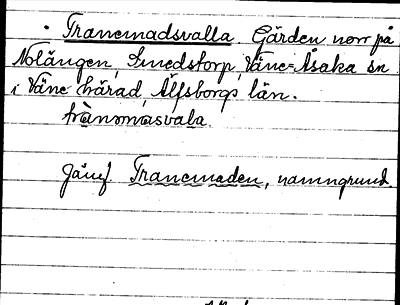 · Tranemadsvalla Gärden norr på
Nolängen, Smedstorp, Väne-Åsaka sn
i Väne härad, Älfsborgs län.
trànomasvala.
Jämf Tranemaden, namngrund.